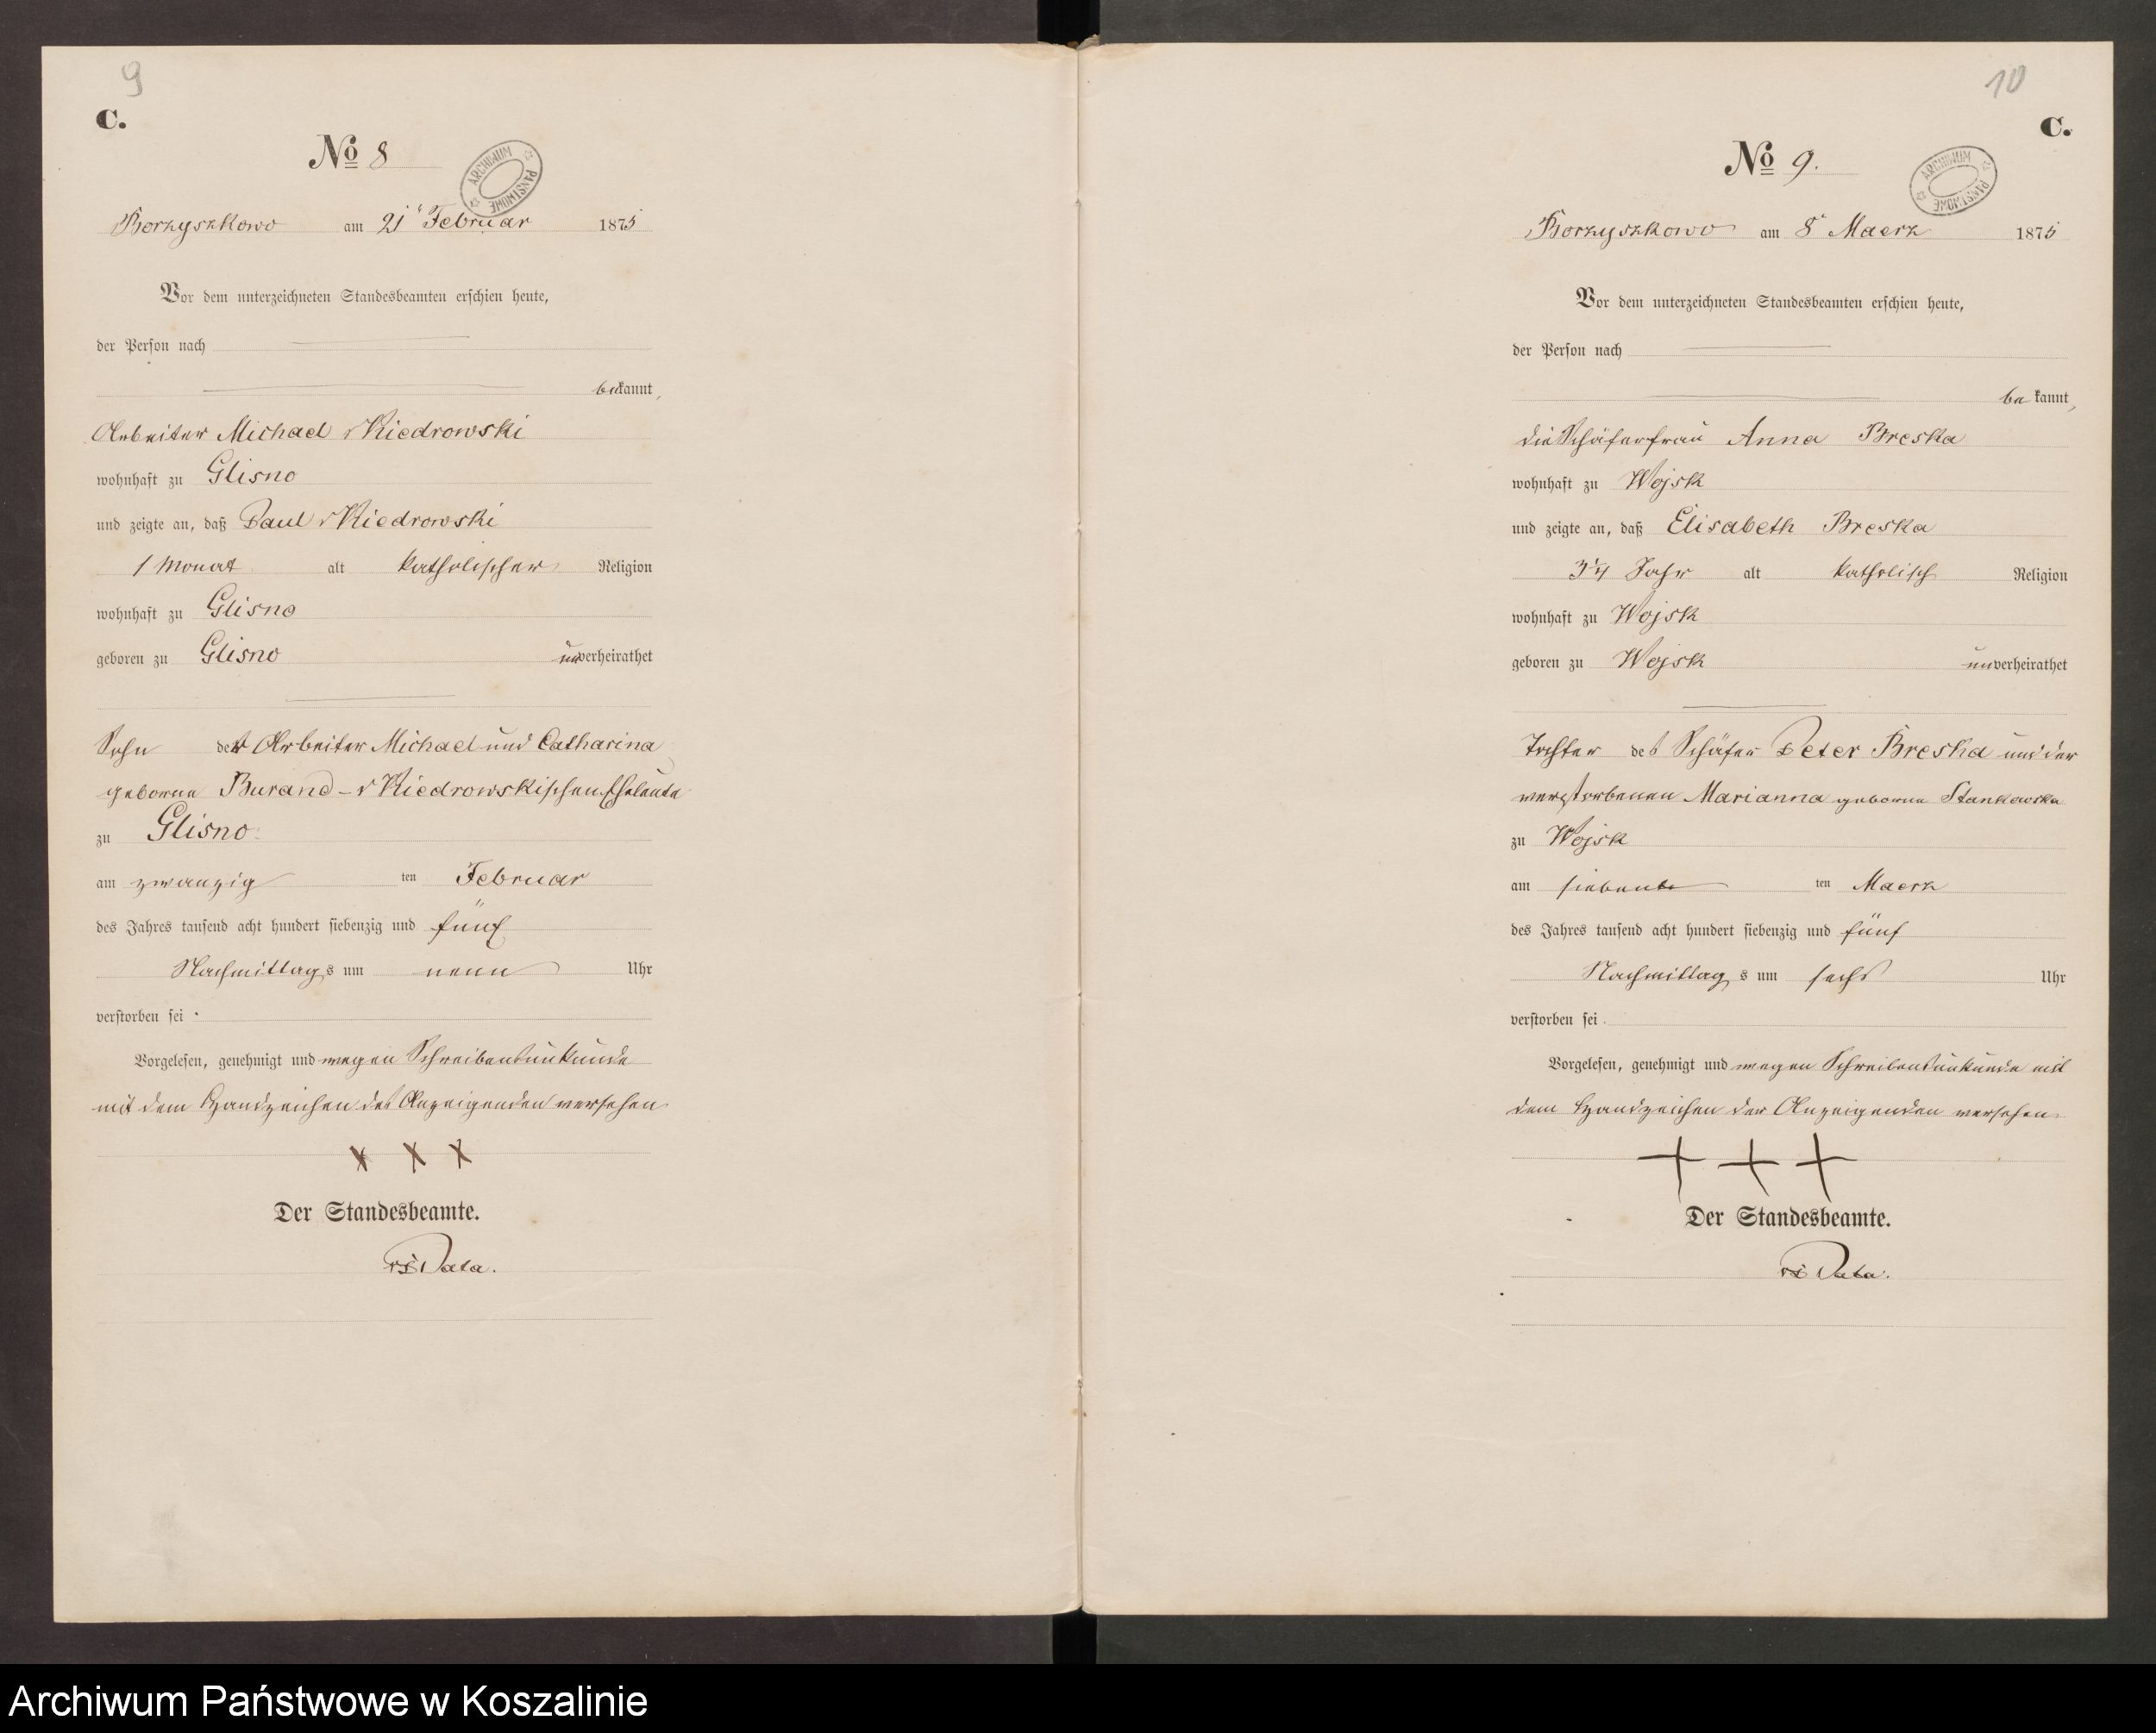 9
C.
No 8
ARCHIWUM PAŃSTWOWE
Borzyszkowo am 21t Februar 1875
Vor dem unterzeichneten Standesbeamten erschien heute,
der Person nach
bekannt,
Arbeiter Michael v Kiedrowski
wohnhaft zu Glisno
und zeigte an, daß Paul v Kiedrowski
1 Monat alt katholischer Religion
wohnhaft zu Glisno
geboren zu Glisno unverheirathet
Sohn der Arbeiter Michael und Catharina
geborne Burand - v Kiedrowskischen Eheleute
zu Glisno
am zwanzig ten Februar
des Jahres tausend acht hundert siebenzig und fünf
Nachmittags um neun Uhr
verstorben sei
Vorgelesen, genehmigt und wegen Schreibensunkunde
mit dem Handzeichen des Anzeigenden versehen
x x x
Der Standesbeamte.
10
C.
No 9.
ARCHIWUM PAŃSTWOWE
Borzyszkowo am 8t Maerz 1875
Vor dem unterzeichneten Standesbeamten erschien heute,
der Person nach
bekannt,
die Schäferfrau Anna Breska
wohnhaft zu Wojsk
und zeigte an, daß Elisabeth Breska
3¼ Jahr alt katholisch Religion
wohnhaft zu Wojsk
geboren zu Wojsk unverheirathet
Tochter des Schäfer Peter Breska und der
verstorbenen Marianna geborne Stankowska
zu Wojsk
am siebente ten Maerz
des Jahres tausend acht hundert siebenzig und fünf
Nachmittags um sechs Uhr
verstorben sei
Vorgelesen, genehmigt und wegen Schreibensunkunde mit
dem Handzeichen der Anzeigenden versehen
+ + +
Der Standesbeamte.
Archiwum Państwowe w Koszalinie